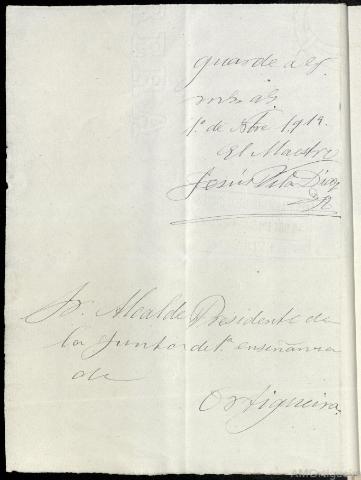 guarde a V.
ms. as.
1º de Obre 1919.
El Maestro
Jesús Vila Díaz
Sr. Alcalde Presidente de
la Junta de 1ª enseñanza
de
Ortigueira.